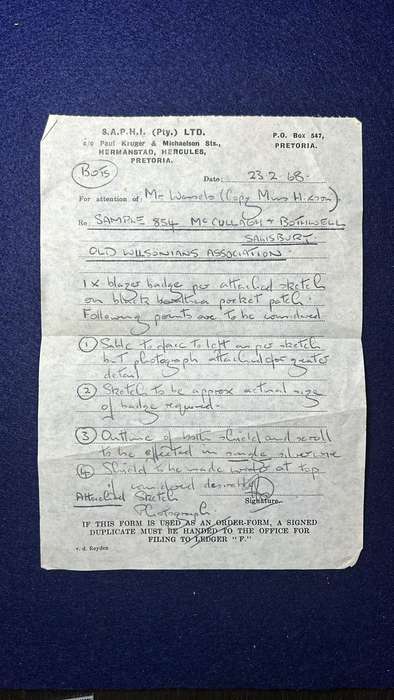 S.A.P.H.I. (Pty.) LTD.
c/o Paul Kruger & Michaelson Sts.,
HERMANSTAD, HERCULES,
PRETORIA.
P.O. Box 547,
PRETORIA.
BOTS
Date: 23 2 68.
For attention of: Mr (Copy Miss Hixon)
Re SAMPLE 854 McCULLAGH & BOTHWELL
SALISBURY
OLD WILSONIANS ASSOCIATION
1 x blazer badge per attached sketch
on black pocket patch.
Following points are to be considered
① Sable to face to left as per sketch
but photograph attached for greater
detail
② Sketch to be approx actual size
of badge required.
③ Outline of both shield and scroll
to be effected in single silver wire
④ Shield to be made wider at top
if considered desirable
Attached Sketch
Photograph.
Signature
IF THIS FORM IS USED AS AN ORDER-FORM, A SIGNED
DUPLICATE MUST BE HANDED TO THE OFFICE FOR
FILING TO LEDGER "F."
v. d. Reyden